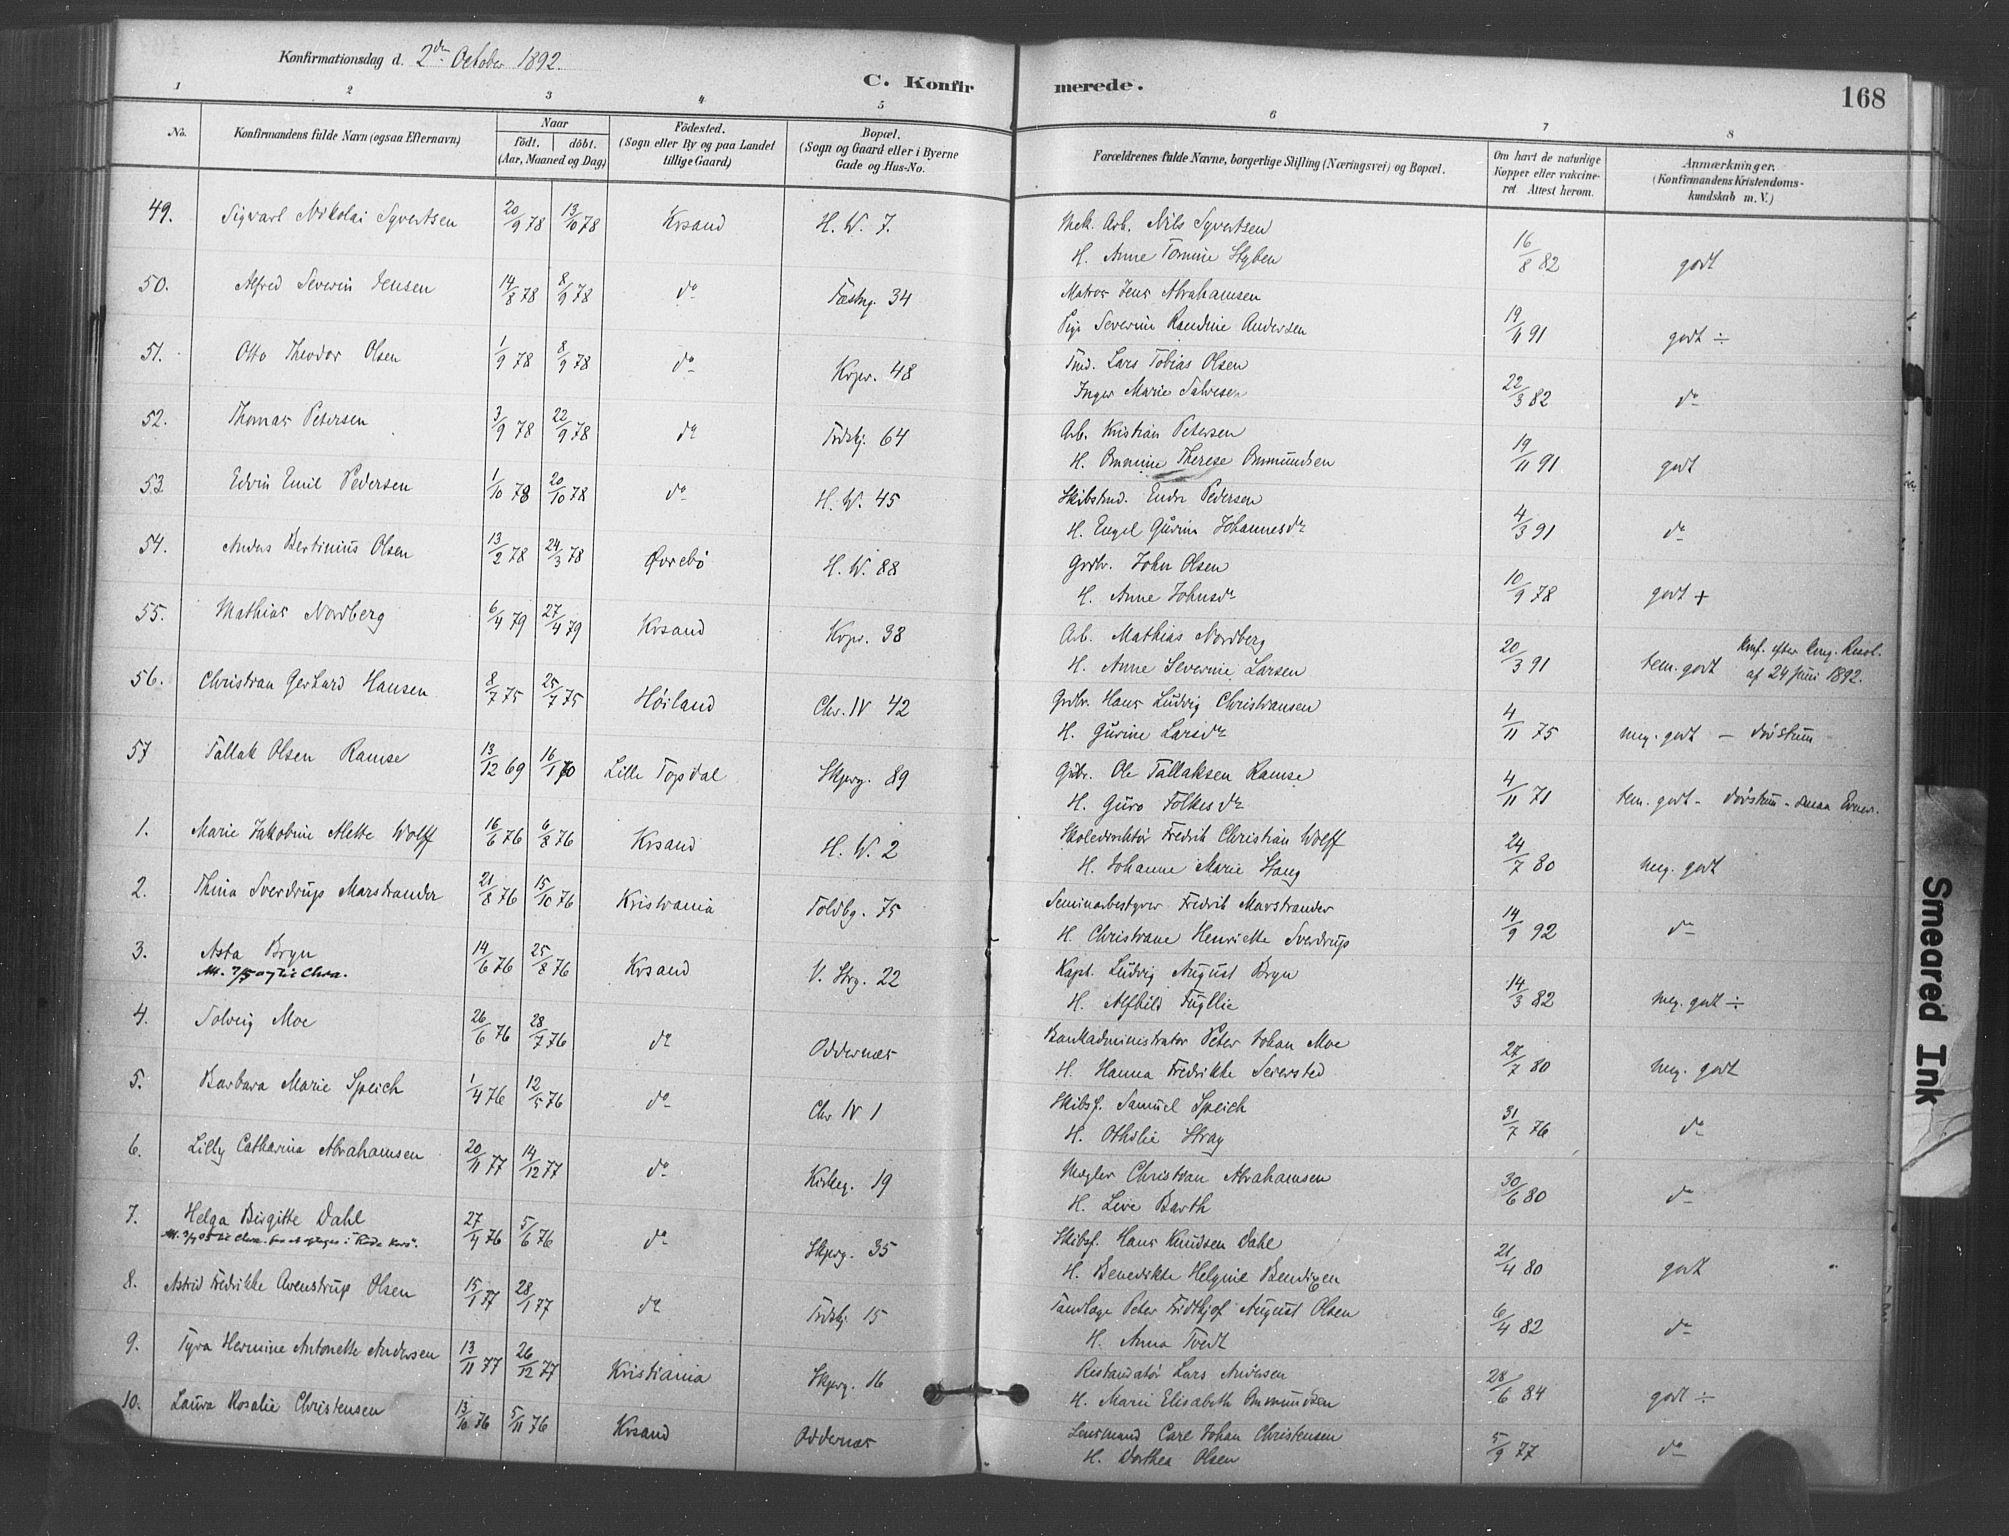 Konfirmationsdag d. 2den October 1892.
C. Konfirmerede.
168
1 2 3 4 5 6 7 8
No.
Konfirmandens fulde Navn (ogsaa Efternavn)
Naar
født. døbt.
(Aar, Maaned og Dag)
Fødested.
(Sogn eller By og paa Landet
tillige Gaard)
Bopæl.
(Sogn og Gaard eller i Byerne
Gade og Hus-No.
Forældrenes fulde Navne, borgerlige Stilling (Næringsvei) og Bopæl.
Om havt de naturlige
Kopper eller vakcine-
ret Attest herom.
Anmærkninger.
(Konfirmandens Kristendoms-
kundskab m. V.)
49. Sigvart Nikolai Syvertsen 20/9 78 13/10 78 Krsand H. W. 7. Mek. Arb. Nils Syvertsen
H. Anne Tomine Hyben 16/8 82 godt
50. Alfred Severin Jensen 14/8 78 8/9 78 do Fæstng. 34 Matros Jens Abrahamsen
Pige Severine Randine Andersen 19/11 91 godt ÷
51. Otto Theodor Olsen 1/9 78 8/9 78 do Krpr. 48 Tmd. Lars Tobias Olsen
Inger Marie Salvesen 22/3 82 do
52. Thomas Petersen 3/9 78 22/9 78 do Trdskj. 64 Arb. Kristian Petersen
H. Ommine Therese Ommundsen 19/11 91 godt
53 Edvin Emil Pedersen 1/10 78 20/10 78 do H. W. 45 Skibstmd. Endre Pedersen
H. Engel Gurine Johannesdr 4/3 91 do
54. Anders Bertinius Olsen 13/2 78 24/3 78 Øvrebø H. W. 88 Grdbr. John Olsen
H. Anne Johnsdr 10/9 78 godt +
55. Mathias Nordberg 6/4 79 27/4 79 Krsand Krpr. 38 Arb. Mathias Nordberg
H. Anne Severine Larsen 20/3 91 tem. godt Konf. efter kng. Resol.
af 24 Juni 1892.
56. Christian Gerhard Hansen 8/7 75 25/7 75 Høiland Chr. IV 42 Grdbr. Hans Ludvig Christiansen
H. Gurine Larsdr 4/11 75 meg. godt – døvstum
57 Tallak Olsen Ramse 13/12 69 16/1 70 Lille Topdal Skjerg. 89 Grdbr. Ole Tallaksen Ramse
H. Guro Folkesdr 4/11 71 tem. godt – døvstum – smaa Evner.
1. Marie Jakobine Alette Wolff 16/6 76 6/8 76 Krsand H. W. 2 Skoledirektør Fredrik Christian Wolff
H. Johanne Marie Stang 24/7 80 meg. godt
2. Thina Sverdrup Marstrander 21/8 76 15/10 76 Kristiania Toldbg. 75 Seminarbestyrer Fredrik Marstrander
H. Christiane Henriette Sverdrup 14/9 92 do
3. Asta Bryn 14/6 76 25/8 76 Krsand V. Strg. 22 Kapt. Ludvig August Bryn
H. Alfhild Fuglie 14/3 82 meg. godt ÷
4. Solveig Moe 26/6 76 28/7 76 do Oddernæs Bankadministrator Peter Johan Moe
H. Hanna Fredrikke Seiersted 27/7 80 meg. godt
5. Barbara Marie Speich 1/4 76 12/5 76 do Chr IV 1 Skibsf. Samuel Speich
H. Othilie Stray 31/7 76 do
6. Lilly Catharina Abrahamsen 20/11 77 14/12 77 do Kirkeg. 19 Mægler Christian Abrahamsen
H. Live Barth 30/6 80 do
7. Helga Birgitte Dahl 27/4 76 5/6 76 do Skjerg. 35 Skibsf. Hans Knudsen Dahl
H. Benedikte Helgine Bendixen 21/4 80 godt
8. Astrid Fredrikke Avenstrup Olsen 15/1 77 28/1 77 do Trdskj. 15 Tandlæge Peter Fridthjof August Olsen
H. Anna Tvedt 6/4 82 do
9. Tyra Hermine Antonette Andersen 13/11 77 26/12 77 Kristiania Skjerg. 16 Restauratør Lars Andersen
H. Marie Elisabeth Ommundsen 28/6 84 godt ÷
10. Laura Rosalie Christensen 13/10 76 5/11 76 Krsand Oddernæs Lensmand Carl Johan Christensen
H. Dorthea Olsen 5/9 77 do
Smeared Ink